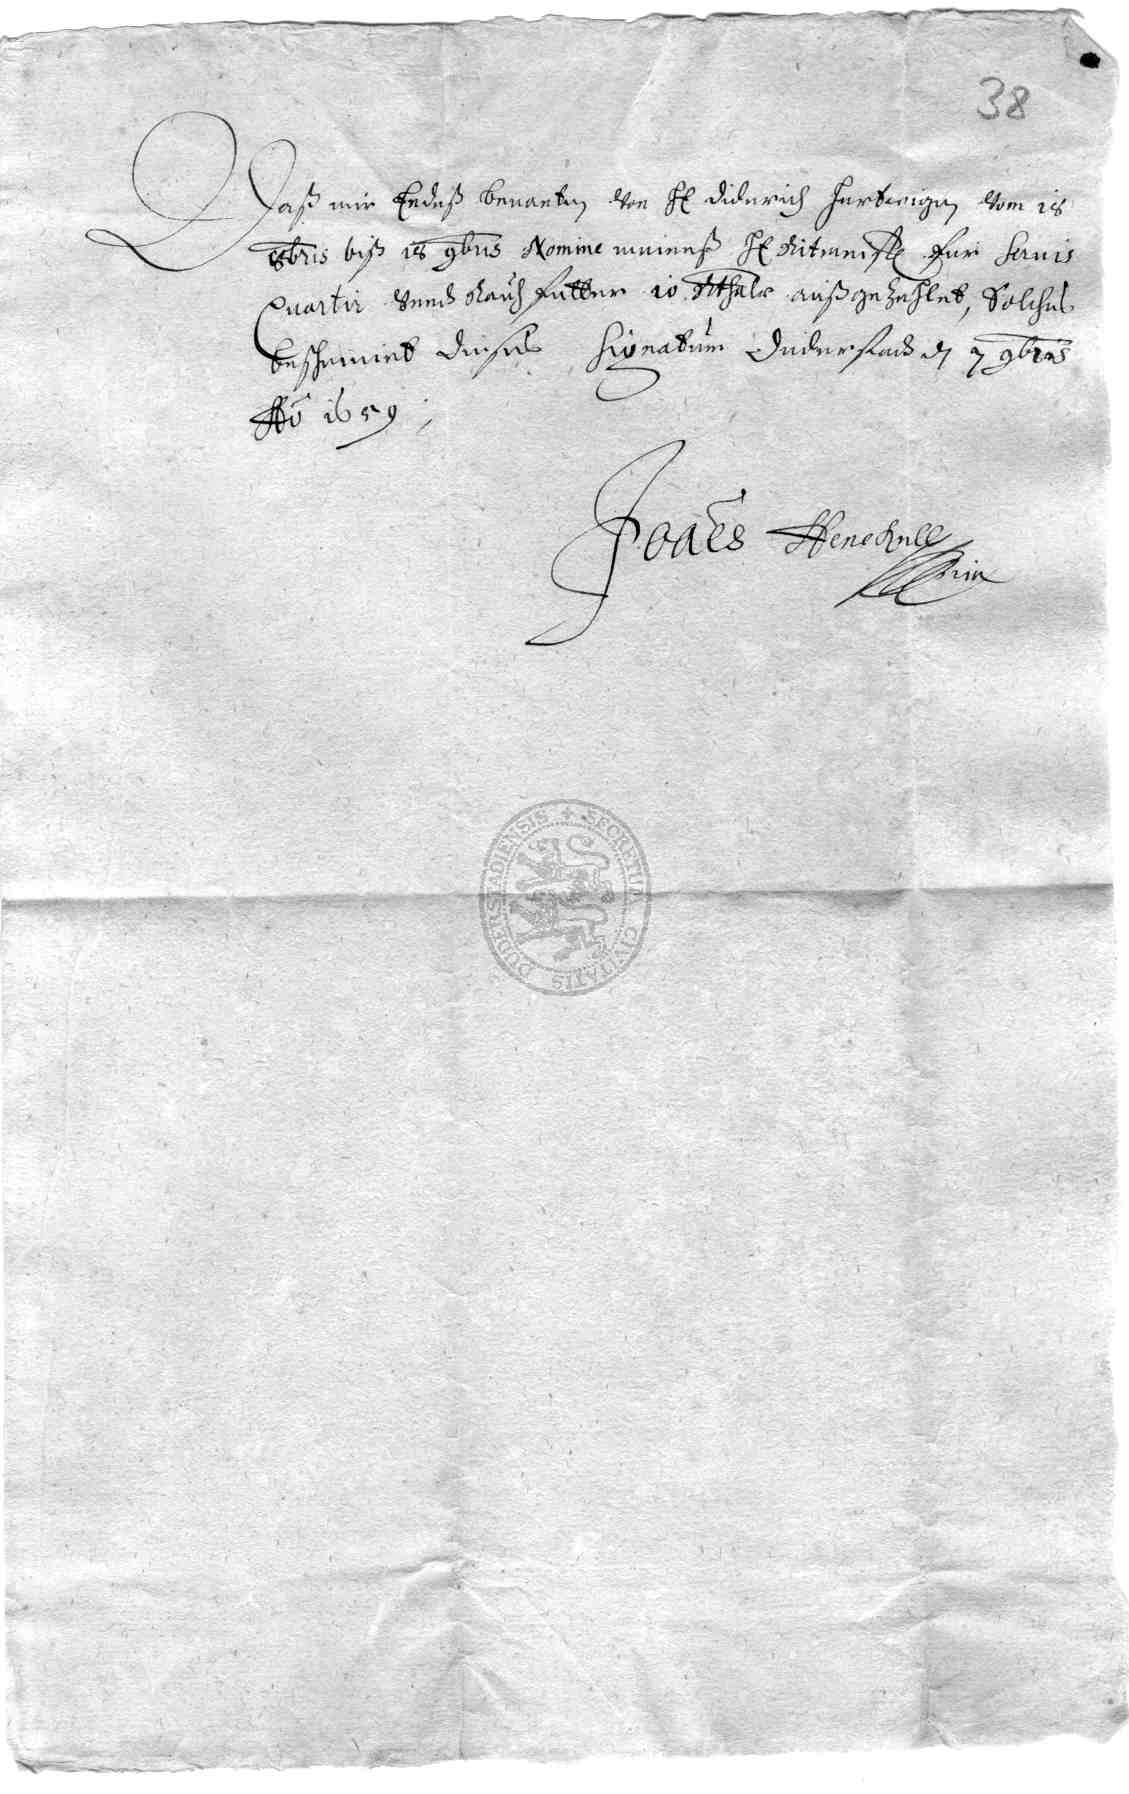 38
Daß mir Endeß benanten von H. Diderich Hertwigen vom 18
8bris biß 18 9bris Nomine meineß H. Ritmeist. für Seruis
Quartir vnnd Rauch Futter 10 Rthalr außgezahlet, Solches
bescheinet dieses Signatum Duderstadt d. 7 9bris
Ao 1659
Joaes
SECRETUM CIVITATIS DUDERSTADIENSIS